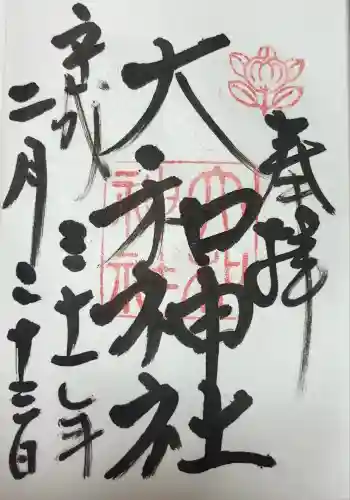 奉拝
大和神社
平成三十一年
二月二十三日
大和
神社